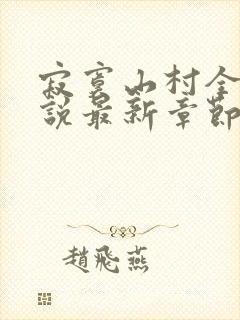 寂寞山村全
説最新章節
趙飛燕